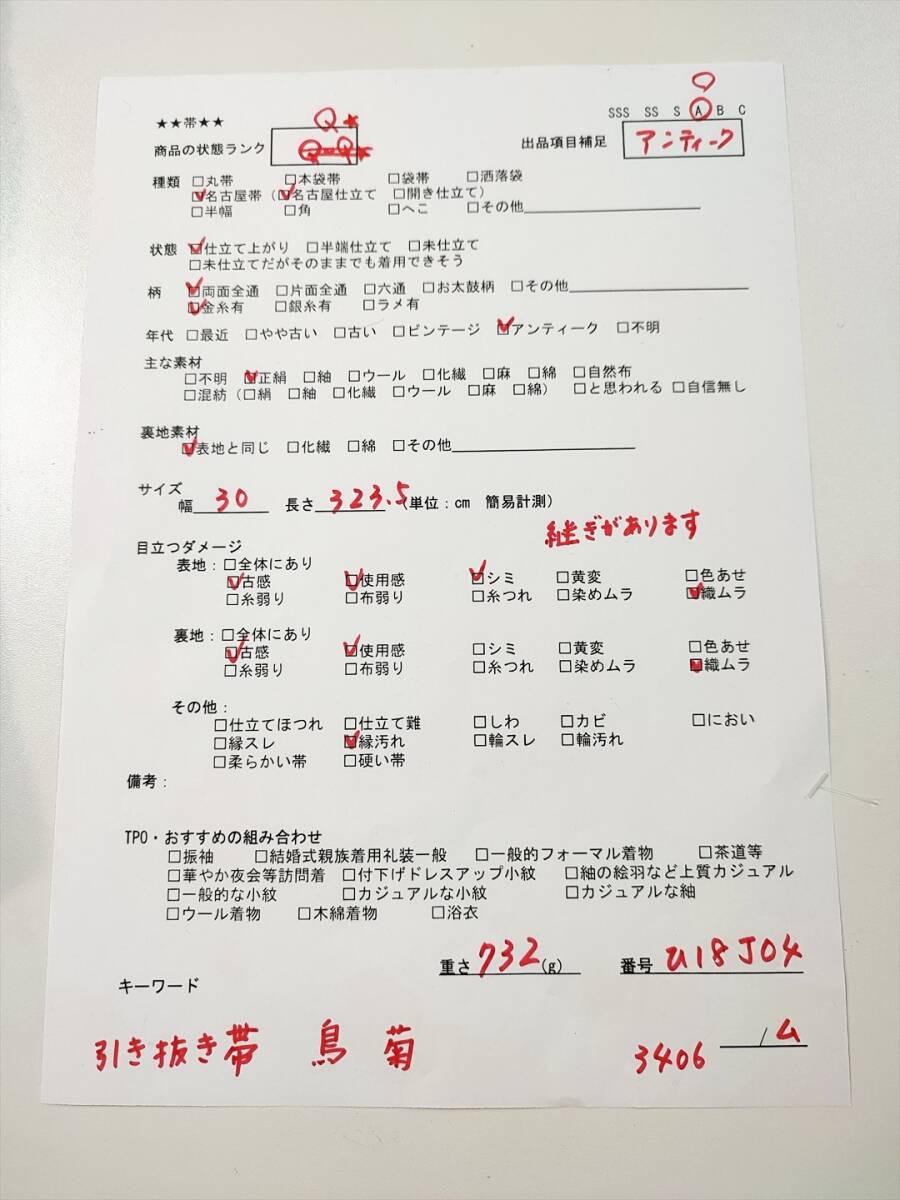 SSS SS S A B C
★★帯★★ Q★
商品の状態ランク 出品項目補足 アンティーク
種類 □丸帯 □本袋帯 □袋帯 □洒落袋
☑名古屋帯（☑名古屋仕立て □開き仕立て）
□半幅 □角 □へこ □その他
状態 ☑仕立て上がり □半端仕立て □未仕立て
□未仕立てだがそのままでも着用できそう
柄 ☑両面全通 □片面全通 □六通 □お太鼓柄 □その他
☑金糸有 □銀糸有 □ラメ有
年代 □最近 □やや古い □古い □ビンテージ ☑アンティーク □不明
主な素材
□不明 ☑正絹 □紬 □ウール □化繊 □麻 □綿 □自然布
□混紡（□絹 □紬 □化繊 □ウール □麻 □綿） □と思われる □自信無し
裏地素材
☑表地と同じ □化繊 □綿 □その他
サイズ
幅 30 長さ 323.5 （単位：cm 簡易計測）
継ぎがあります
目立つダメージ
表地：□全体にあり
☑古感 ☑使用感 ☑シミ □黄変 □色あせ
□糸弱り □布弱り □糸つれ □染めムラ ☑織ムラ
裏地：□全体にあり
☑古感 ☑使用感 □シミ □黄変 □色あせ
□糸弱り □布弱り □糸つれ □染めムラ ☑織ムラ
その他：
□仕立てほつれ □仕立て難 □しわ □カビ □におい
□縁スレ ☑縁汚れ □輪スレ □輪汚れ
□柔らかい帯 □硬い帯
備考：
TPO・おすすめの組み合わせ
□振袖 □結婚式親族着用礼装一般 □一般的フォーマル着物 □茶道等
□華やか夜会等訪問着 □付下げドレスアップ小紋 □紬の絵羽など上質カジュアル
□一般的な小紋 □カジュアルな小紋 □カジュアルな紬
□ウール着物 □木綿着物 □浴衣
重さ 732 (g) 番号 U18J04
キーワード
引き抜き帯 鳥 菊 3406 /ム